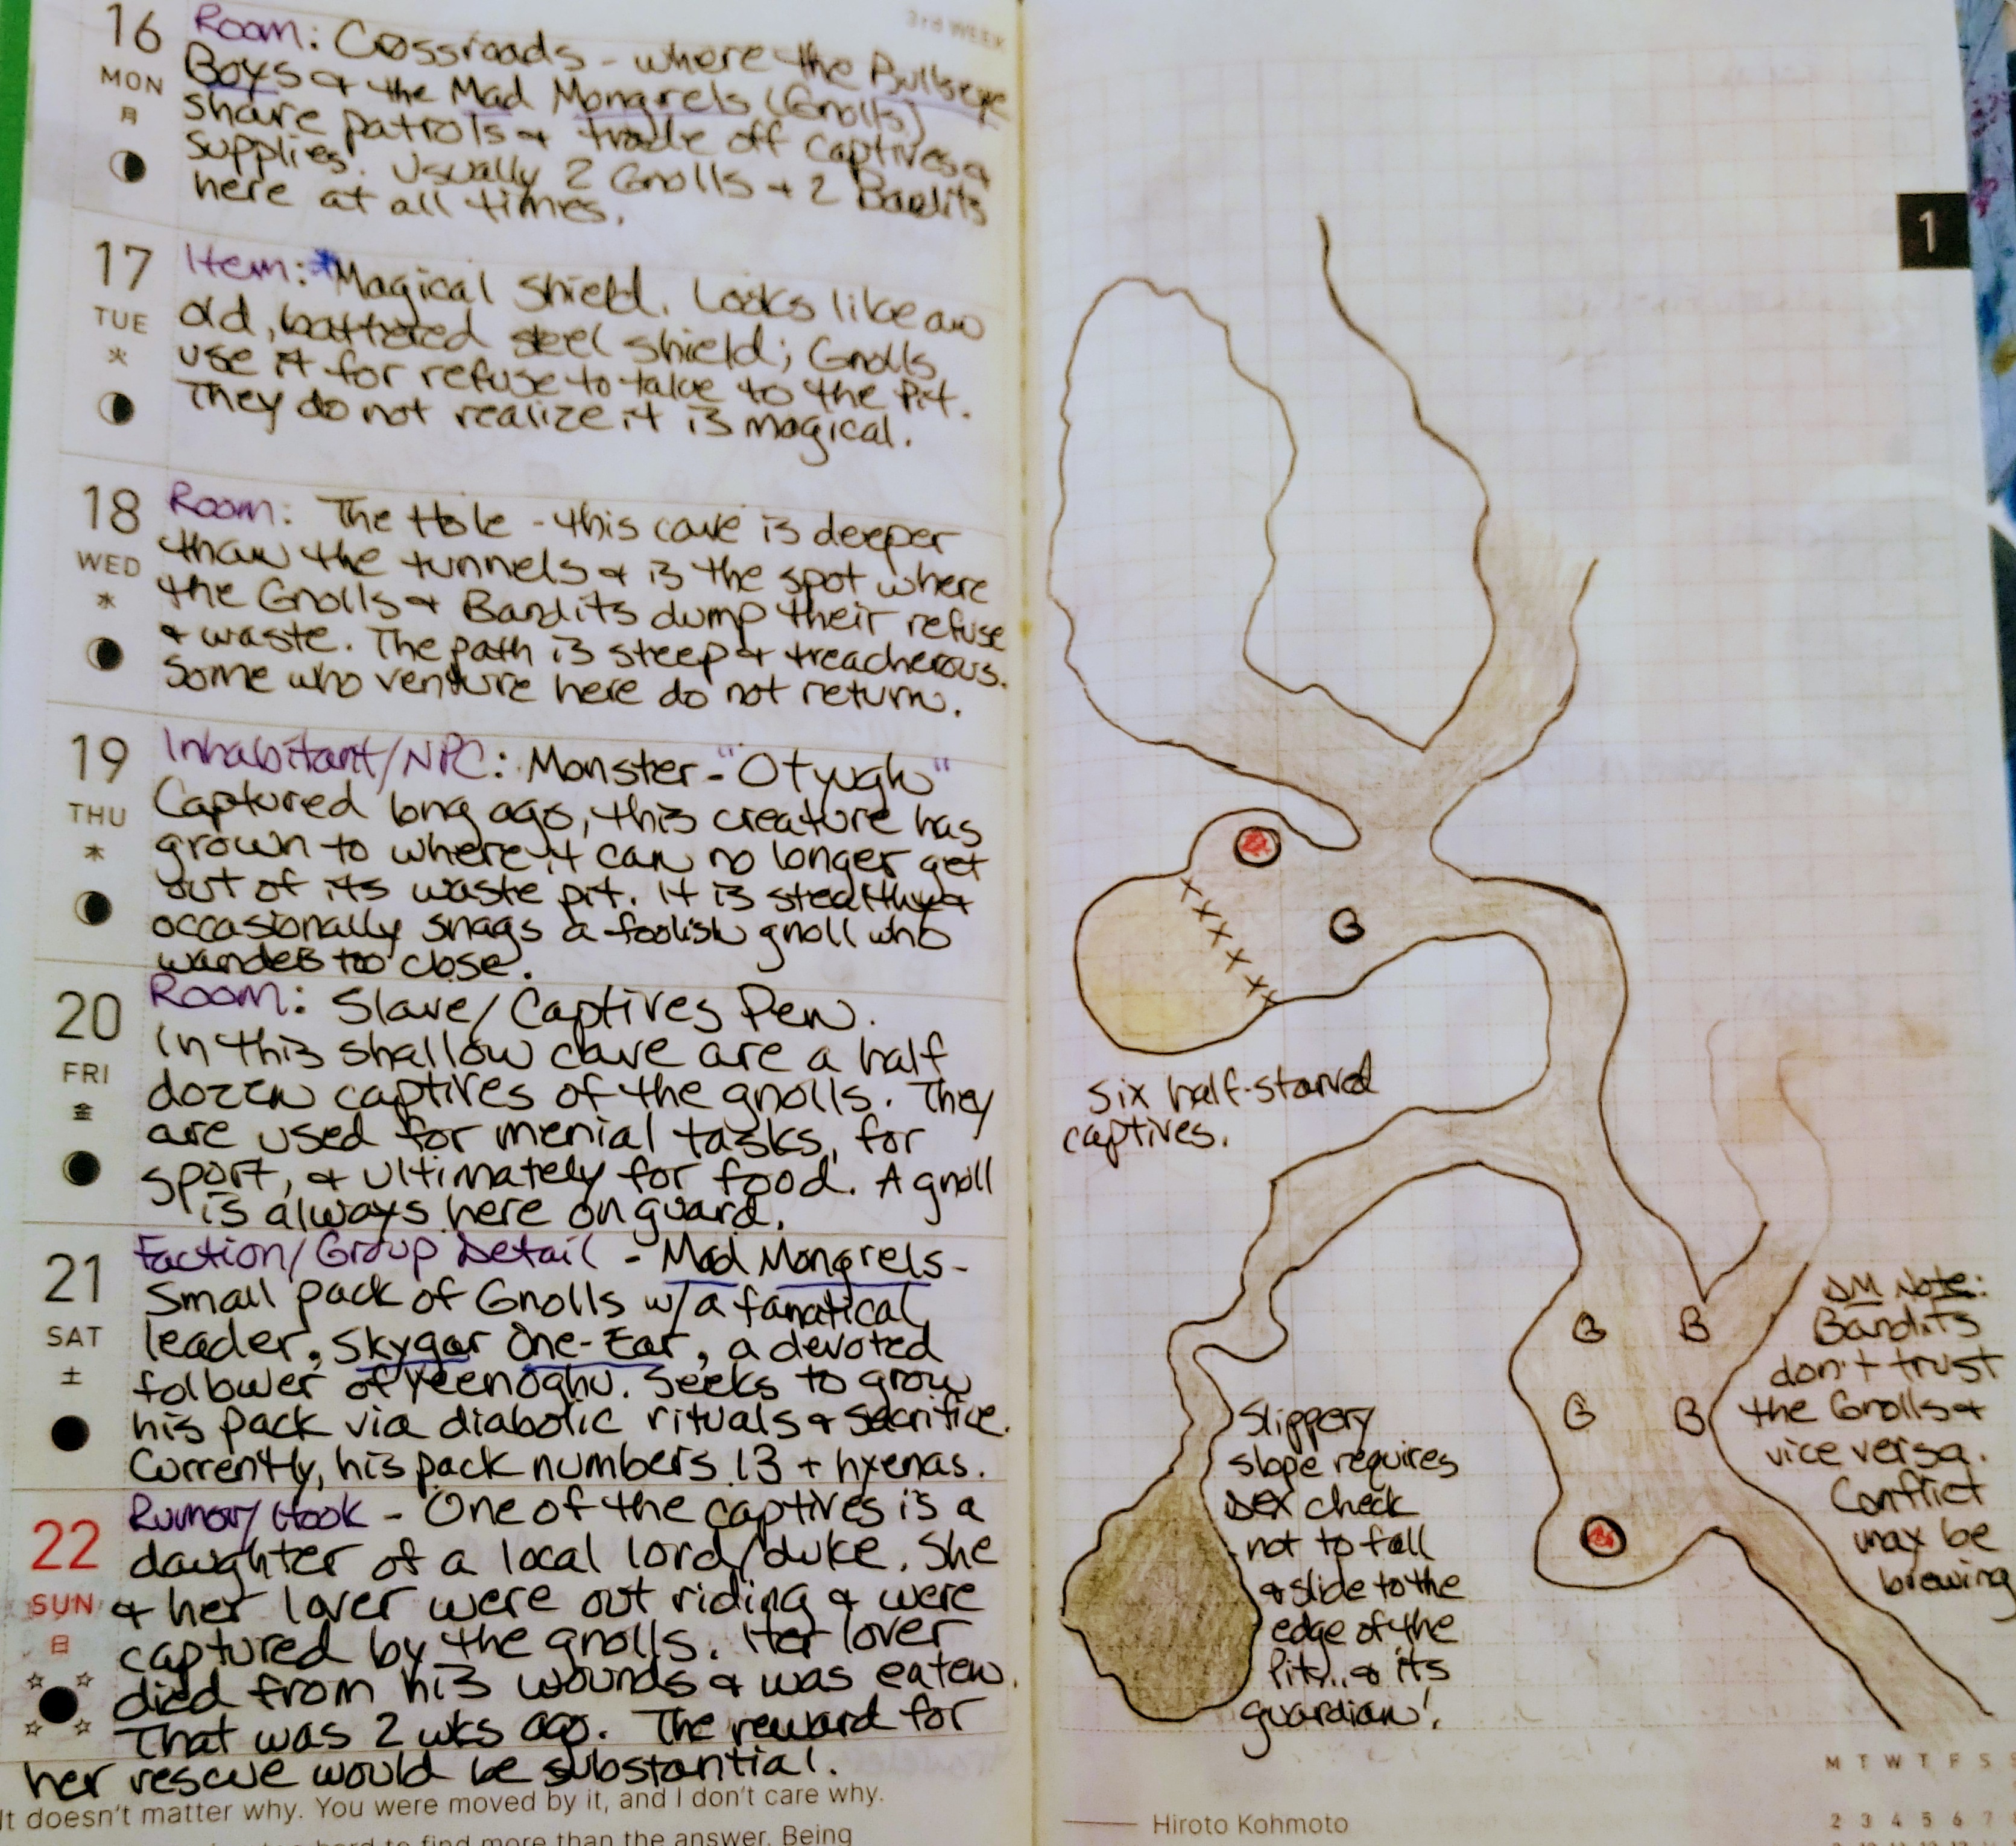 3rd WEEK
16
MON
月
Room: Crossroads - where the Bullseye
Boys & the Mad Mongrels (Gnolls)
share patrols & trade off captives &
supplies. Usually 2 Gnolls & 2 Bandits
here at all times.
17
TUE
火
Item: *Magical Shield. Looks like an
old, battered steel shield; Gnolls
use it for refuse to take to the Pit.
They do not realize it is magical.
18
WED
水
Room: The Hole - this cave is deeper
than the tunnels & is the spot where
the Gnolls & Bandits dump their refuse
& waste. The path is steep & treacherous.
Some who venture here do not return.
19
THU
木
Inhabitant/NPC: Monster - "Otyugh"
Captured long ago, this creature has
grown to where it can no longer get
out of its waste pit. It is stealthy &
occasionally snags a foolish gnoll who
wanders too close.
20
FRI
金
Room: Slave/Captives Pen.
In this shallow cave are a half
dozen captives of the gnolls. They
are used for menial tasks, for
sport, & ultimately for food. A gnoll
is always here on guard.
21
SAT
土
Faction/Group Detail - Mad Mongrels -
Small pack of Gnolls w/a fanatical
leader, Skygar One-Ear, a devoted
follower of Yeenoghu. Seeks to grow
his pack via diabolic rituals & sacrifice.
Currently, his pack numbers 13 + hyenas.
22
SUN
日
Rumor/Hook - One of the captives is a
daughter of a local lord/duke. She
& her lover were out riding & were
captured by the gnolls. Her lover
died from his wounds & was eaten.
That was 2 wks ago. The reward for
her rescue would be substantial.
It doesn't matter why. You were moved by it, and I don't care why.
to find more than the answer. Being
1
G
six half-starved
captives.
G B
G B
DM Note:
Bandits
don't trust
the Gnolls &
vice versa.
Conflict
may be
brewing
Slippery
slope requires
DEX check
not to fall
& slide to the
edge of the
Pit... & its
guardian!
Hiroto Kohmoto
M T W T F S S
2 3 4 5 6 7